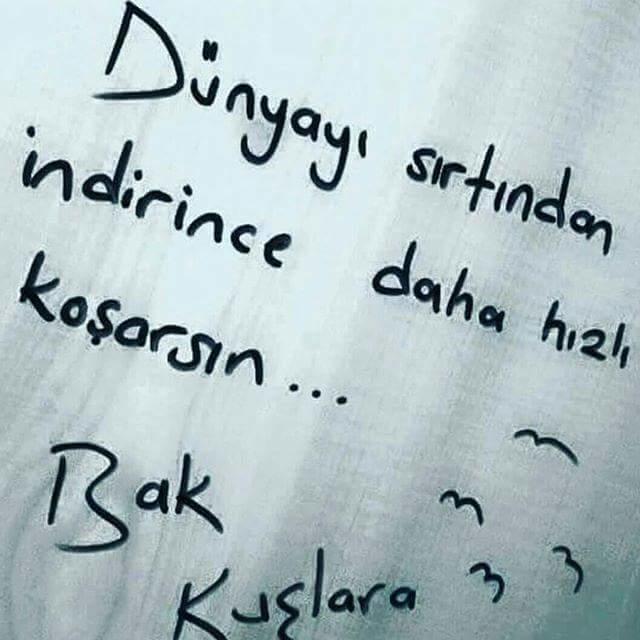 Dünyayı sırtından
indirince daha hızlı
koşarsın...
Bak
Kuşlara